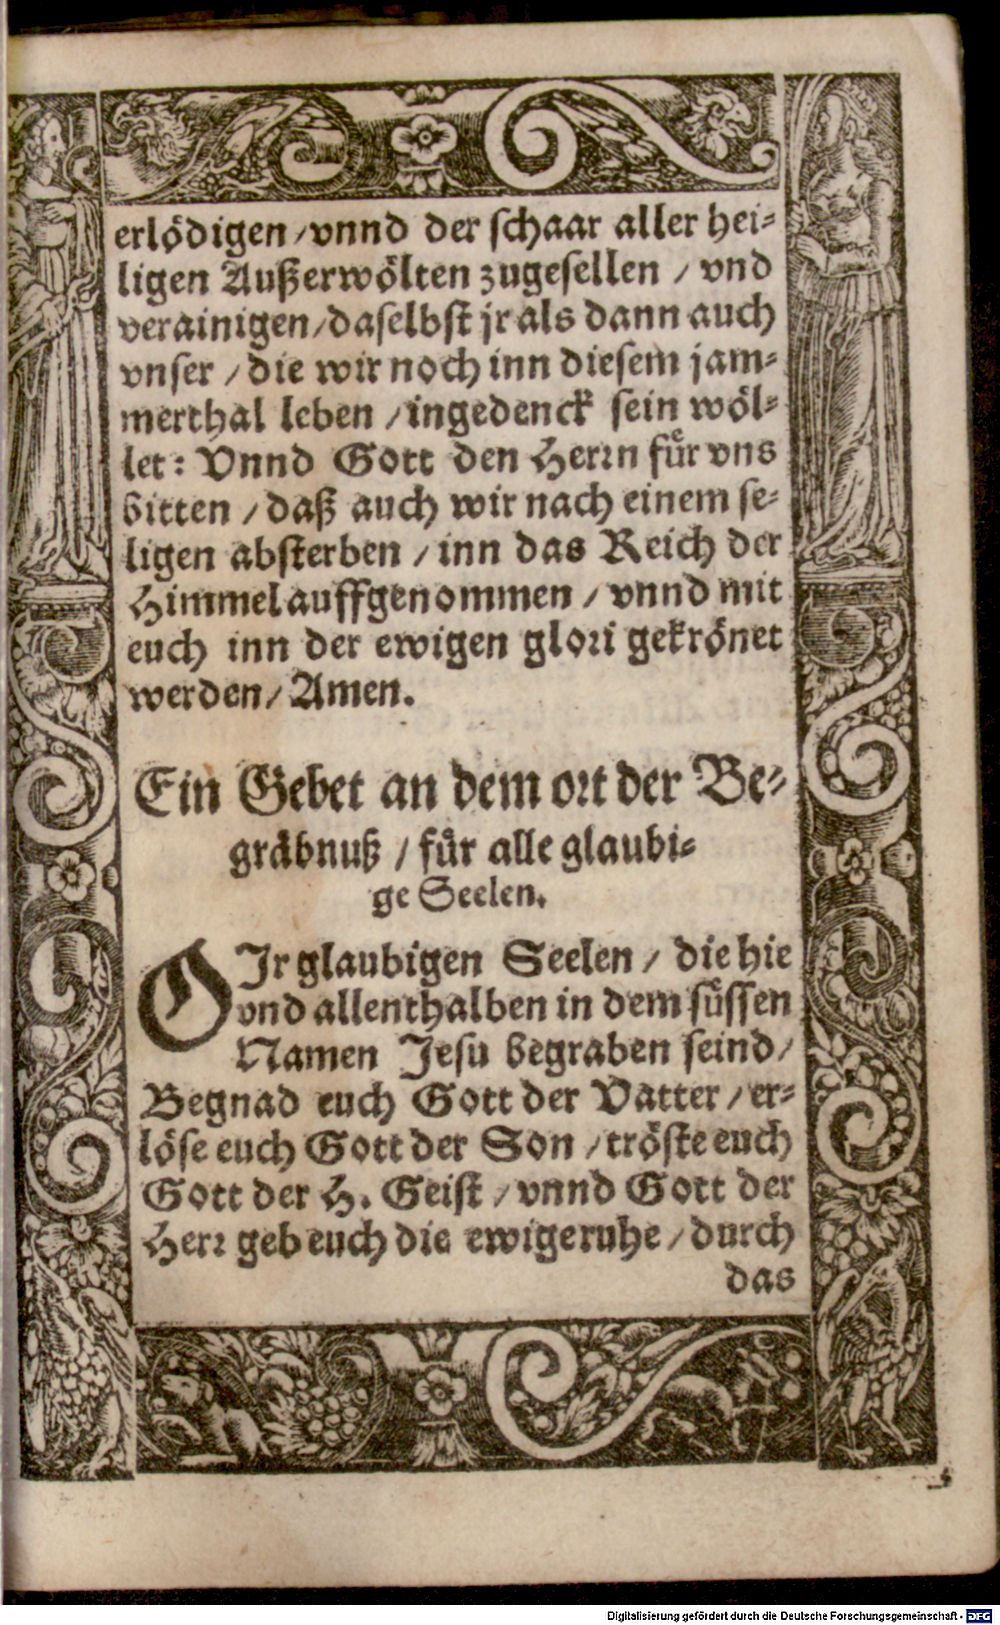 erlödigen / vnnd der schaar aller hei⸗
ligen Außerwölten zugesellen / vnd
verainigen / daselbst jr als dann auch
vnser / die wir noch inn diesem jam⸗
merthal leben / ingedenck sein wöl⸗
let: Vnnd Gott den Herrn für vns
bitten / daß auch wir nach einem se⸗
ligen absterben / inn das Reich der
Himmel auffgenommen / vnnd mit
euch inn der ewigen glori gekrönet
werden / Amen.
Ein Gebet an dem ort der Be⸗
gräbnuß / für alle glaubi⸗
ge Seelen.
O Jr glaubigen Seelen / die hie
vnd allenthalben in dem süssen
Namen Jesu begraben seind /
Begnad euch Gott der Vatter / er⸗
löse euch Gott der Son / tröste euch
Gott der H. Geist / vnnd Gott der
Herr geb euch die ewige ruhe / durch
das
Digitalisierung gefördert durch die Deutsche Forschungsgemeinschaft - DFG